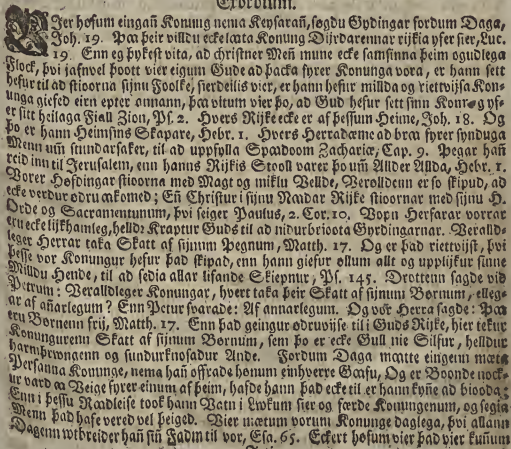 Exordium.
VJer hofum eingan̄ Konung nema Keysaran̄, søgdu Gydingar fordum Daga,
Joh. 19. Þaa þeir villdu ecke læta Konung Dijrdarennar rijkia yfer sier, Luc.
19. Enn eg þykest vita, ad christner Men̄ mune ecke samsinna þeim ogudlega
Flock, þvi jafnvel þoott vier eigum Gude ad þacka fyrer Konunga vora, er hann sett
hefur til ad stioorna sijnu Foolke, sierdeilis vier, er hann hefur millda og riettvijsa Kon-
unga giefed eirn epter annann, þaa vitum vier þo, ad Gud hefur sett sinn Konung yf-
er sitt heilaga Fiall Zion, Ps. 2. Hvers Rijke ecke er af þessum Heime, Joh. 18. Og
þo er hann Heimsins Skapare, Hebr. 1. Hvers Herradæme ad braa fyrer synduga
Menn um stundarsaker, til ad uppfylla Spaadoom Zachariæ, Cap. 9. Þegar han̄
reid inn til Jerusalem, enn hanns Rijkis Stooll varer þo um̄ Allder Allda, Hebr. 1.
Vorer Hofdingar stioorna med Magt og miklu Vellde, Verolldenn er so skipud, ad
ecke verdur odruvijs komed; En̄ Christur i sijnu Naadar Rijke stioornar med sijnu H.
Orde og Sacramentunum, þvi seiger Paulus, 2. Cor. 10. Vopn Herfarar vorrar
eru ecke lijkamleg, helldr Kraptur Guds til ad nidurbrioota Gyrdingarnar. Verald-
leger Herrar taka Skatt af sijnum Þegnum, Matth. 17. Og er þad riettvijst, þvi
þesse vor Konungur hefur þad skipad, enn hann giefur ollum allt og upplijkur sinne
Milldu Hende, til ad sedia allar lifande Skiepnur, Ps. 145. Drottenn sagde vid
Petrum: Veralldleger Konungar, hvert taka þeir Skatt af sijnum Bornum, elleg-
ar af añarlegum? Enn Petur svarade: Af annarlegum. Og vor Herra sagde: Þaa
eru Bornenn frij, Matth. 17. Enn þad geingur odruvijse til i Guds Rijke, hier tekur
Konungurenn Skatt af sijnum Bornum, sem þo er ecke Gull nie Silfur, helldur
harmþrvngenn og sundurknosadur Ande. Fordum Daga maatte eingenn mæta
Persanna Konunge, nema han̄ offrade honum einhverre Giæfu, Og er Boonde nock-
ur vard aa Veige fyrer einum af þeim, hafde hann þad ecke til er hann kynne ad biooda:
Enn i þessu Raadleise took hann Vatn i Lwkum sier og færde Konungenum, og segia
Menn þad hafe vered vel þeiged. Vier mætum vorum Konunge daglega, þvi allann
Dagenn wtbreider han̄ sin̄ Fadm til vor, Esa. 65. Eckert hofum vier þad vier kunnum